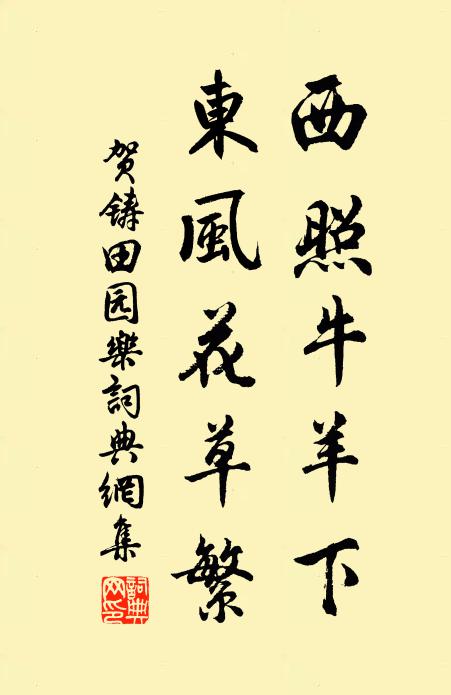 西照牛羊下
東風花草繁
贺鑄田园樂詞典網集
詞典
网印